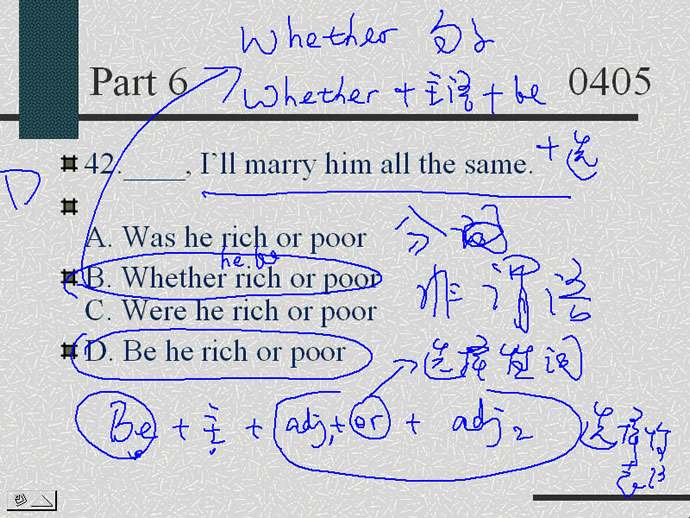 Whether 句子
Part 6
0405
Whether + 主语 + be
42.____, I'll marry him all the same.
+ 选
D
A. Was he rich or poor
分词
he be
B. Whether rich or poor
非谓语
C. Were he rich or poor
D. Be he rich or poor
选择
Be + 主 + adj1 + or + adj2
选择